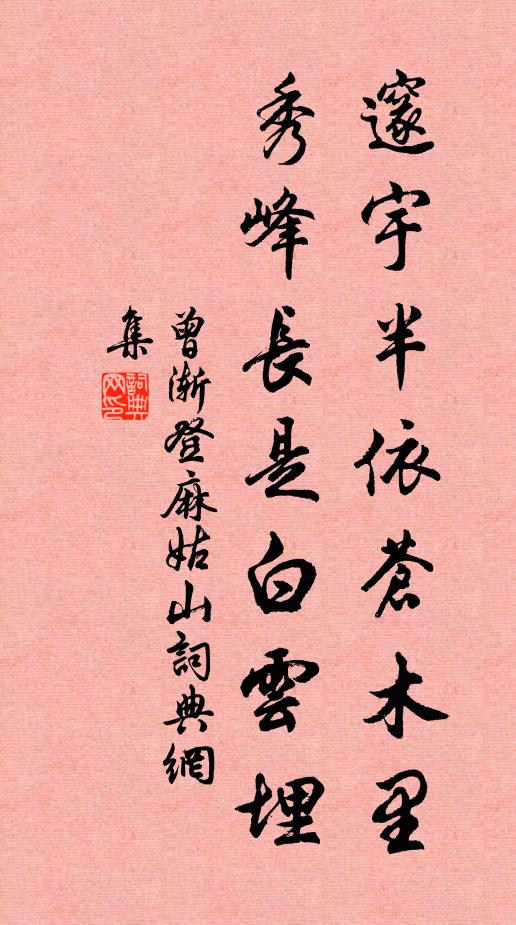 邃宇半依蒼木里
秀峰長是白雲埋
曾漸登麻姑山詞典網
集
詞典網印